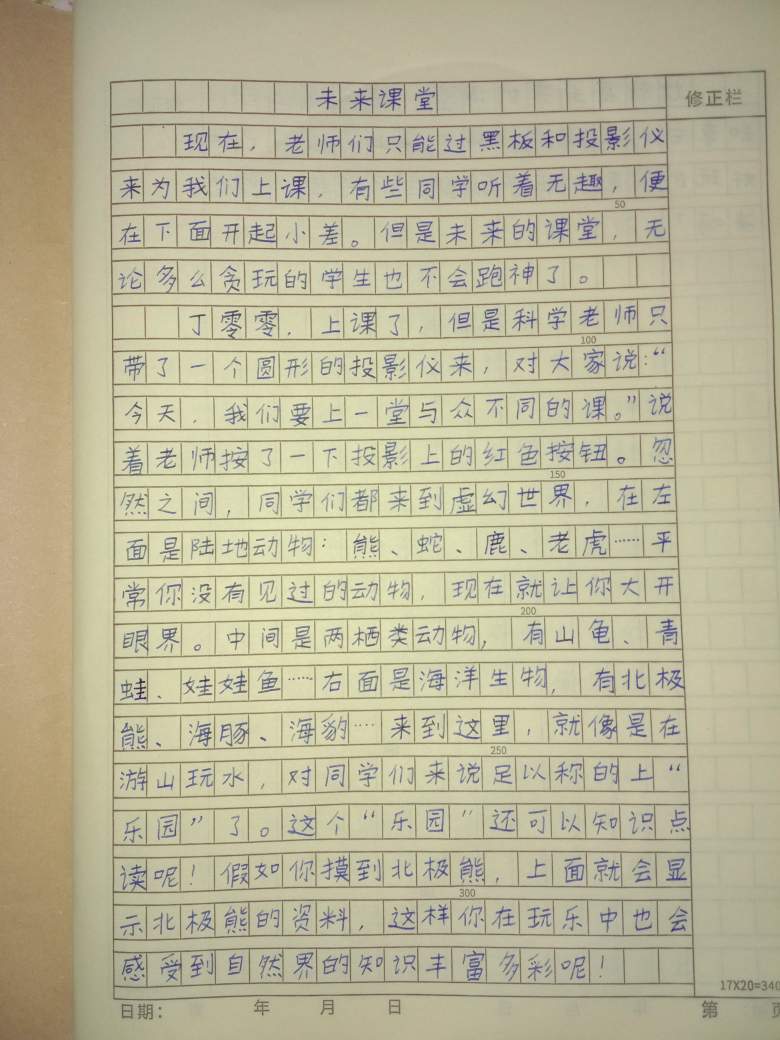 未来课堂
修正栏
现在，老师们只能过黑板和投影仪
来为我们上课，有些同学听着无趣，便
50
在下面开起小差。但是未来的课堂，无
论多么贪玩的学生也不会跑神了。
丁零零，上课了，但是科学老师只
100
带了一个圆形的投影仪来，对大家说：“
今天，我们要上一堂与众不同的课。”说
着老师按了一下投影上的红色按钮。忽
150
然之间，同学们都来到虚幻世界，在左
面是陆地动物：熊、蛇、鹿、老虎……平
常你没有见过的动物，现在就让你大开
200
眼界。中间是两栖类动物，有山龟、青
蛙、娃娃鱼……右面是海洋生物，有北极
熊、海豚、海豹……来到这里，就像是在
250
游山玩水，对同学们来说足以称的上“
乐园”了。这个“乐园”还可以知识点
读呢！假如你摸到北极熊，上面就会显
300
示北极熊的资料，这样你在玩乐中也会
感受到自然界的知识丰富多彩呢！
17X20=340
日期： 年 月 日 第 页